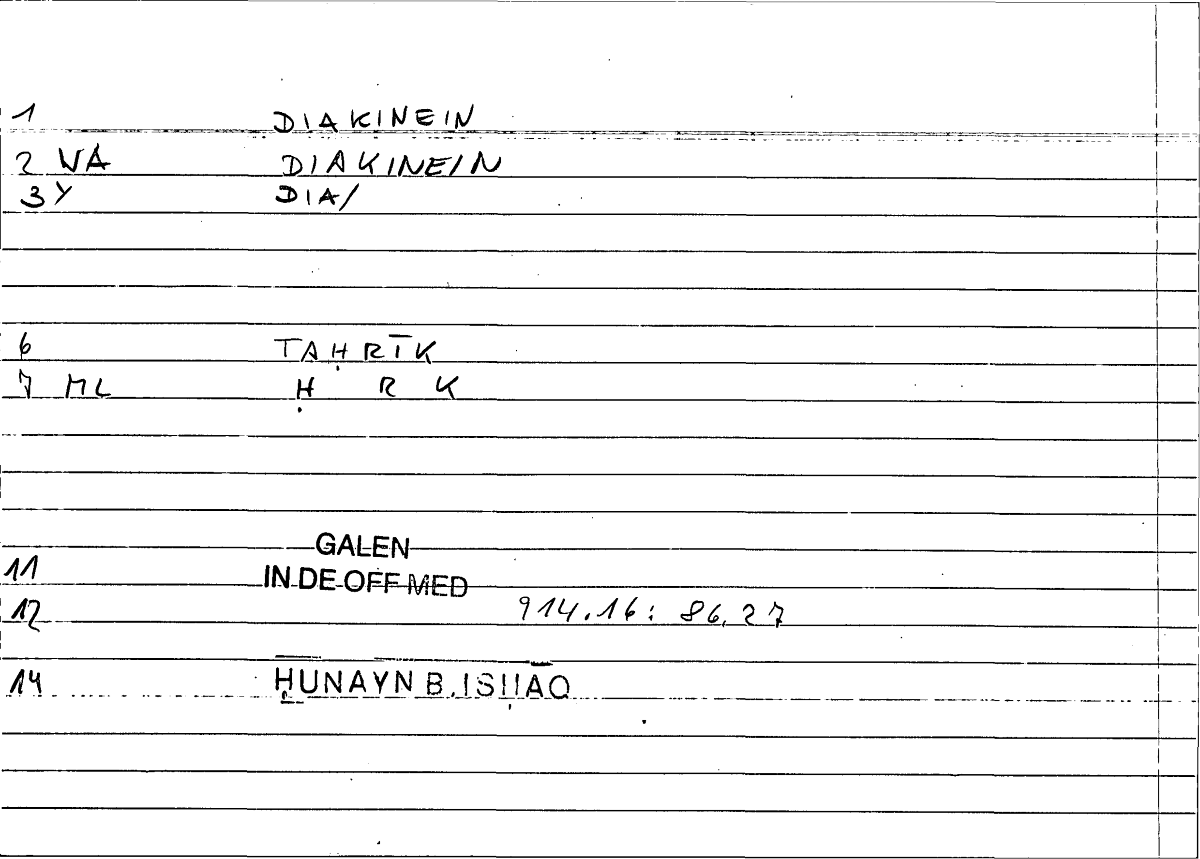 1 DIAKINEIN
2 WA DIAKINEIN
3 Y DIA/
6 TAḤRĪK
7 ML Ḥ R K
GALEN
11 IN DE OFF MED
12 914.16: 86,27
14 ḤUNAYN B. ISḤĀQ